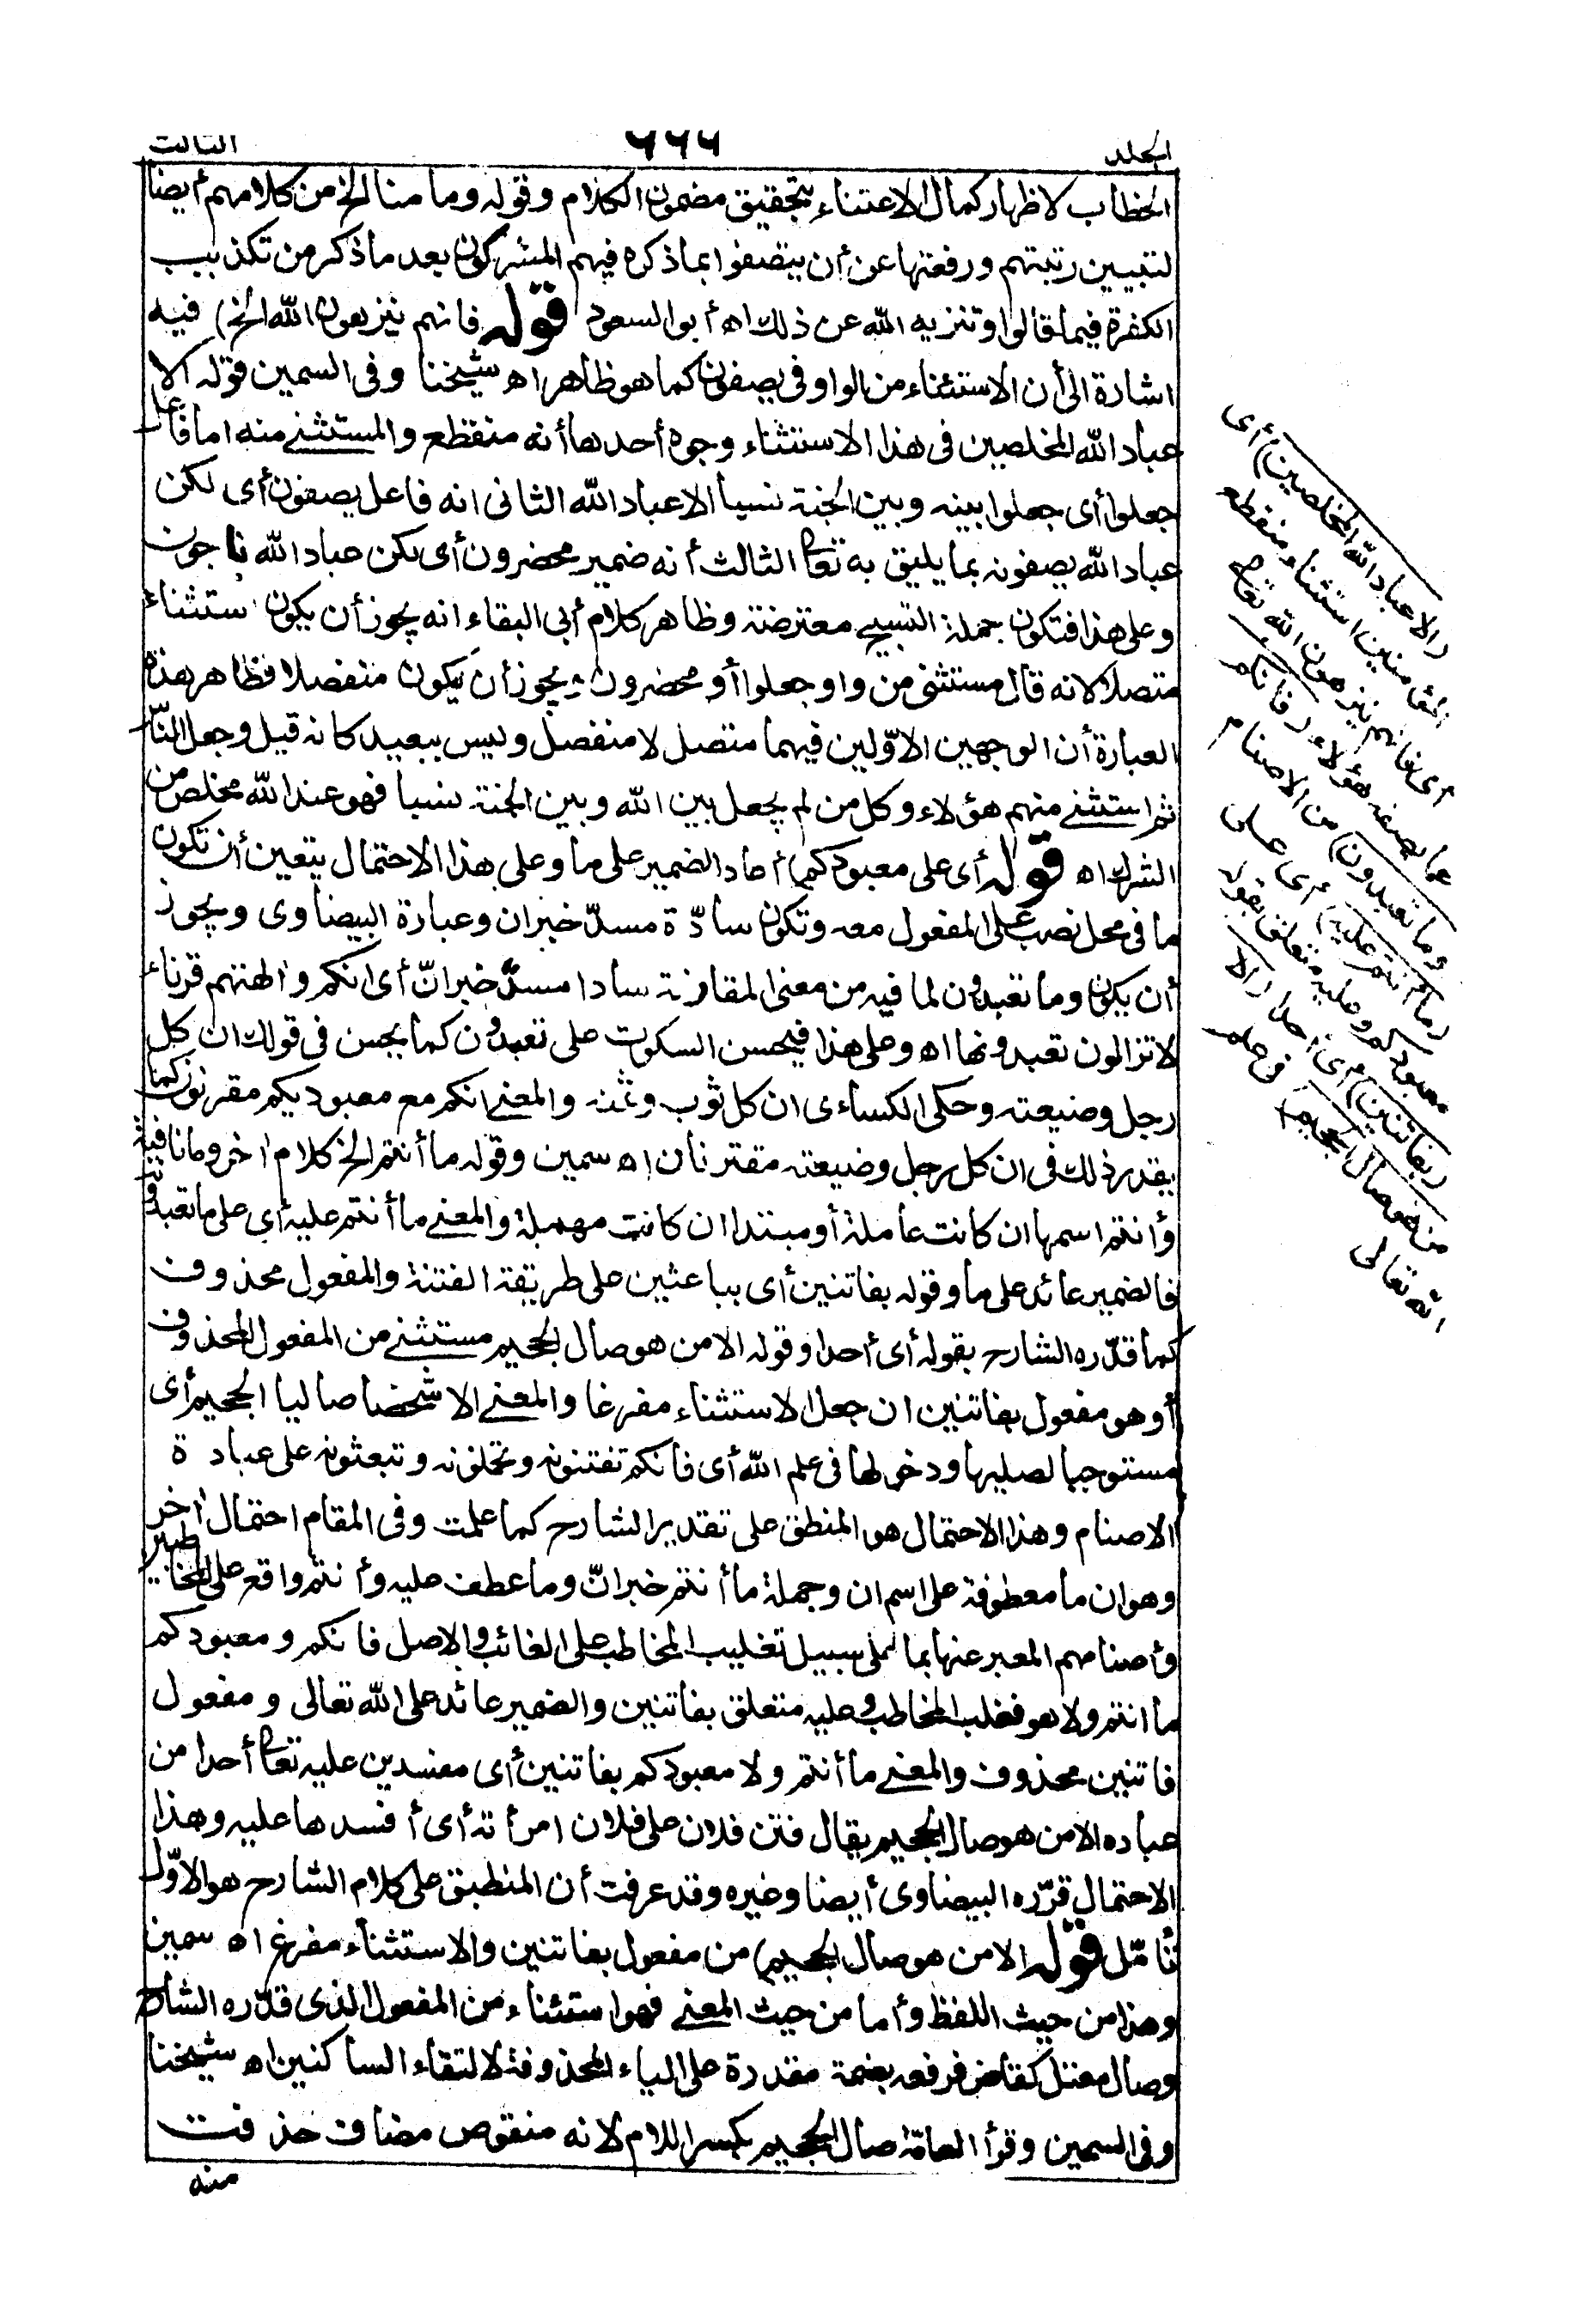 الجلد ٦٦٦ الثالث
الخطاب لاظهار كمال الاعتناء بتحقيق مضمون الكلام وقوله وما منا الخ من كلامهم أيضا
لتبيين رتبتهم ورفعتها عن أن يتصفوا بما ذكره فيهم المشركون بعد ما ذكر من تكذيب
الكفرة فيما قالوا وتنزيه الله عن ذلك اه أبو السعود قوله فانهم ينزهون الله الخ) فيه
اشارة الى أن الاستثناء من الواو فى يصفون كما هو ظاهر اه شيخنا وفى السمين قوله الا
عباد الله المخلصين فى هذا الاستثناء وجوه أحدها أنه منقطع والمستثنى منه اما فاعل
جعلوا أى جعلوا بينه وبين الجنة نسبا الا عباد الله الثانى انه فاعل يصفون أى لكن
عباد الله يصفونه بما يليق به تعالى الثالث أنه ضمير محضرون أى لكن عباد الله ناجون
وعلى هذا فتكون جملة التسبيح معترضة وظاهر كلام أبى البقاء انه يجوز أن يكون استثناء
متصلا لانه قال مستثنى من واو جعلوا أو محضرون ويجوز أن يكون منفصلا فظاهر هذه
العبارة أن الوجهين الاوّلين فيهما متصل لا منفصل وليس ببعيد كانه قيل وجعل الناس
ثم استثنى منهم هؤلاء وكل من لم يجعل بين الله وبين الجنة نسبا فهو عند الله مخلص من
الشرك اه قوله أى على معبودكم) أعاد الضمير على ما وعلى هذا الاحتمال يتعين أن تكون
ما فى محل نصب على المفعول معه وتكون سادّة مسدّ خبر ان وعبارة البيضاوى ويجوز
أن يكون وما تعبدون لما فيه من معنى المقارنة سادا مسدّ خبر انّ أى انكم وآلهتهم قرناء
لا تزالون تعبدونها اه وعلى هذا فيحسن السكوت على تعبدون كما يحسن فى قولك ان كل
رجل وضيعته وحكى الكساءى ان كل ثوب وثمنه والمعنى انكم مع معبوديكم مقرنون كما
يقدر ذلك فى ان كل رجل وضيعته مقترنان اه سمين وقوله ما أنتم الخ كلام اخر وما نافية
وأنتم اسمها ان كانت عاملة أو مبتدا ان كانت مهملة والمعنى ما أنتم عليه أى على ما تعبدون
فالضمير عائد على ما وقوله بفاتنين أى بباعثين على طريقة الفتنة والمفعول محذوف
كما قدّره الشارح بقوله أى أحدا وقوله الا من هو صال الجحيم مستثنى من المفعول المحذوف
أو هو مفعول بفاتنين ان جعل الاستثناء مفرغا والمعنى الا شخصا صاليا الجحيم أى
مستوجبا لصليها ودخولها فى علم الله أى فانكم تفتنونه وتبعثونه على عبادة
الاصنام وهذا الاحتمال هو المنطبق على تقدير الشارح كما علمت وفى المقام احتمال اخر
وهو ان ما معطوفة على اسم ان وجملة ما أنتم خبر انّ وما عطف عليه وأنتم واقع على المخاطبين
وأصنامهم المعبر عنها بما على سبيل تغليب المخاطب على الغائب والاصل فانكم ومعبودكم
ما انتم ولا هو فغلب المخاطب وعليه متعلق بفاتنين والضمير عائد على الله تعالى ومفعول
فاتنين محذوف والمعنى ما أنتم ولا معبودكم بفاتنين أى مفسدين عليه تعالى أحدا من
عباده الا من هو صال الجحيم يقال فتن فلان على فلان امرأته أى أفسدها عليه وهذا
الاحتمال قرّره البيضاوى أيضا وغيره وقد عرفت أن المنطبق على كلام الشارح هو الاوّل
تأمّل قوله الا من هو صال الجحيم) من مفعول بفاتنين والاستثناء مفرغ اه سمين
وهذا من حيث اللفظ وأما من حيث المعنى فهو استثناء من المفعول الذى قدّره الشارح
وصال معتل كقاض فرفعه بضمة مقدرة على الياء المحذوفة لالتقاء الساكنين اه شيخنا
وفى السمين وقرأ العامّة صال الجحيم بكسر اللام لانه منقوص مضاف حذفت
منه
(الا عباد الله المخلصين) أى
المؤمنين استثناء منقطع
أى فانهم ينزهون الله تعالى
عما يصفه هؤلاء (فانكم
وما تعبدون) من الاصنام
(ما أنتم عليه) أى على
معبودكم وعليه متعلق بقوله
(بفاتنين) أى أحدا (الا
من هو صال الجحيم) فى علم
الله تعالى